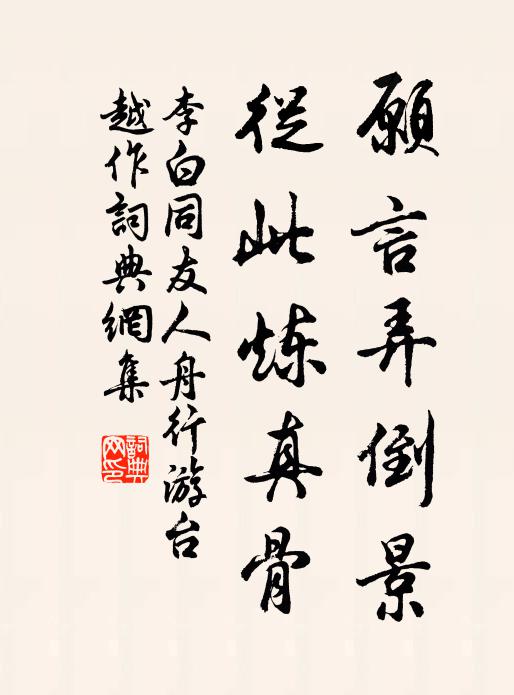 願言弄倒景
從此炼真骨
李白同友人舟行游台
越作詞典網集
詞典网印